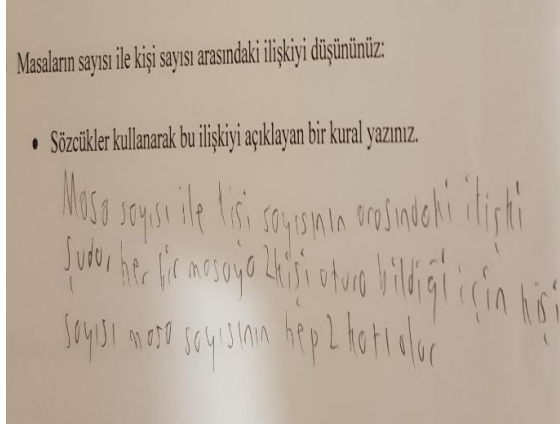 Masaların sayısı ile kişi sayısı arasındaki ilişkiyi düşününüz:
• Sözcükler kullanarak bu ilişkiyi açıklayan bir kural yazınız.
Masa sayısı ile kişi sayısının arasındaki ilişki
şudur, her bir masaya 2 kişi otura bildiği için kişi
sayısı masa sayısının hep 2 katı olur